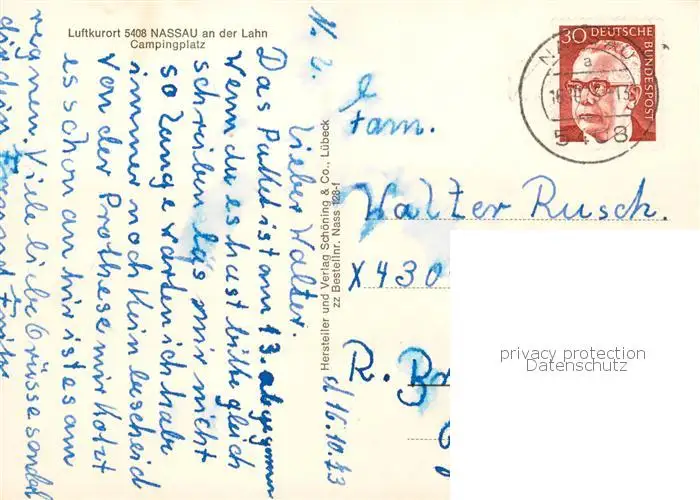 Luftkurort 5408 NASSAU an der Lahn
Campingplatz
N. d. 16.10.73
Lieber Walter.
Das Paket ist am 13. abgegangen
wenn du es hast bitte gleich
schreiben las mir nicht
so lange warten ich habe
immer noch kein bescheid
von der Prothese mir kotzt
es schon an hir ist es am
regnen. Viele liebe Grüsse sendet
dir dein Freund
Hersteller und Verlag Schöning & Co., Lübeck
zz Bestellnr. Nass 128-f
30 DEUTSCHE
BUNDESPOST
a
5408
Fam.
Walter Rusch.
X430
R. Br
privacy protection
Datenschutz